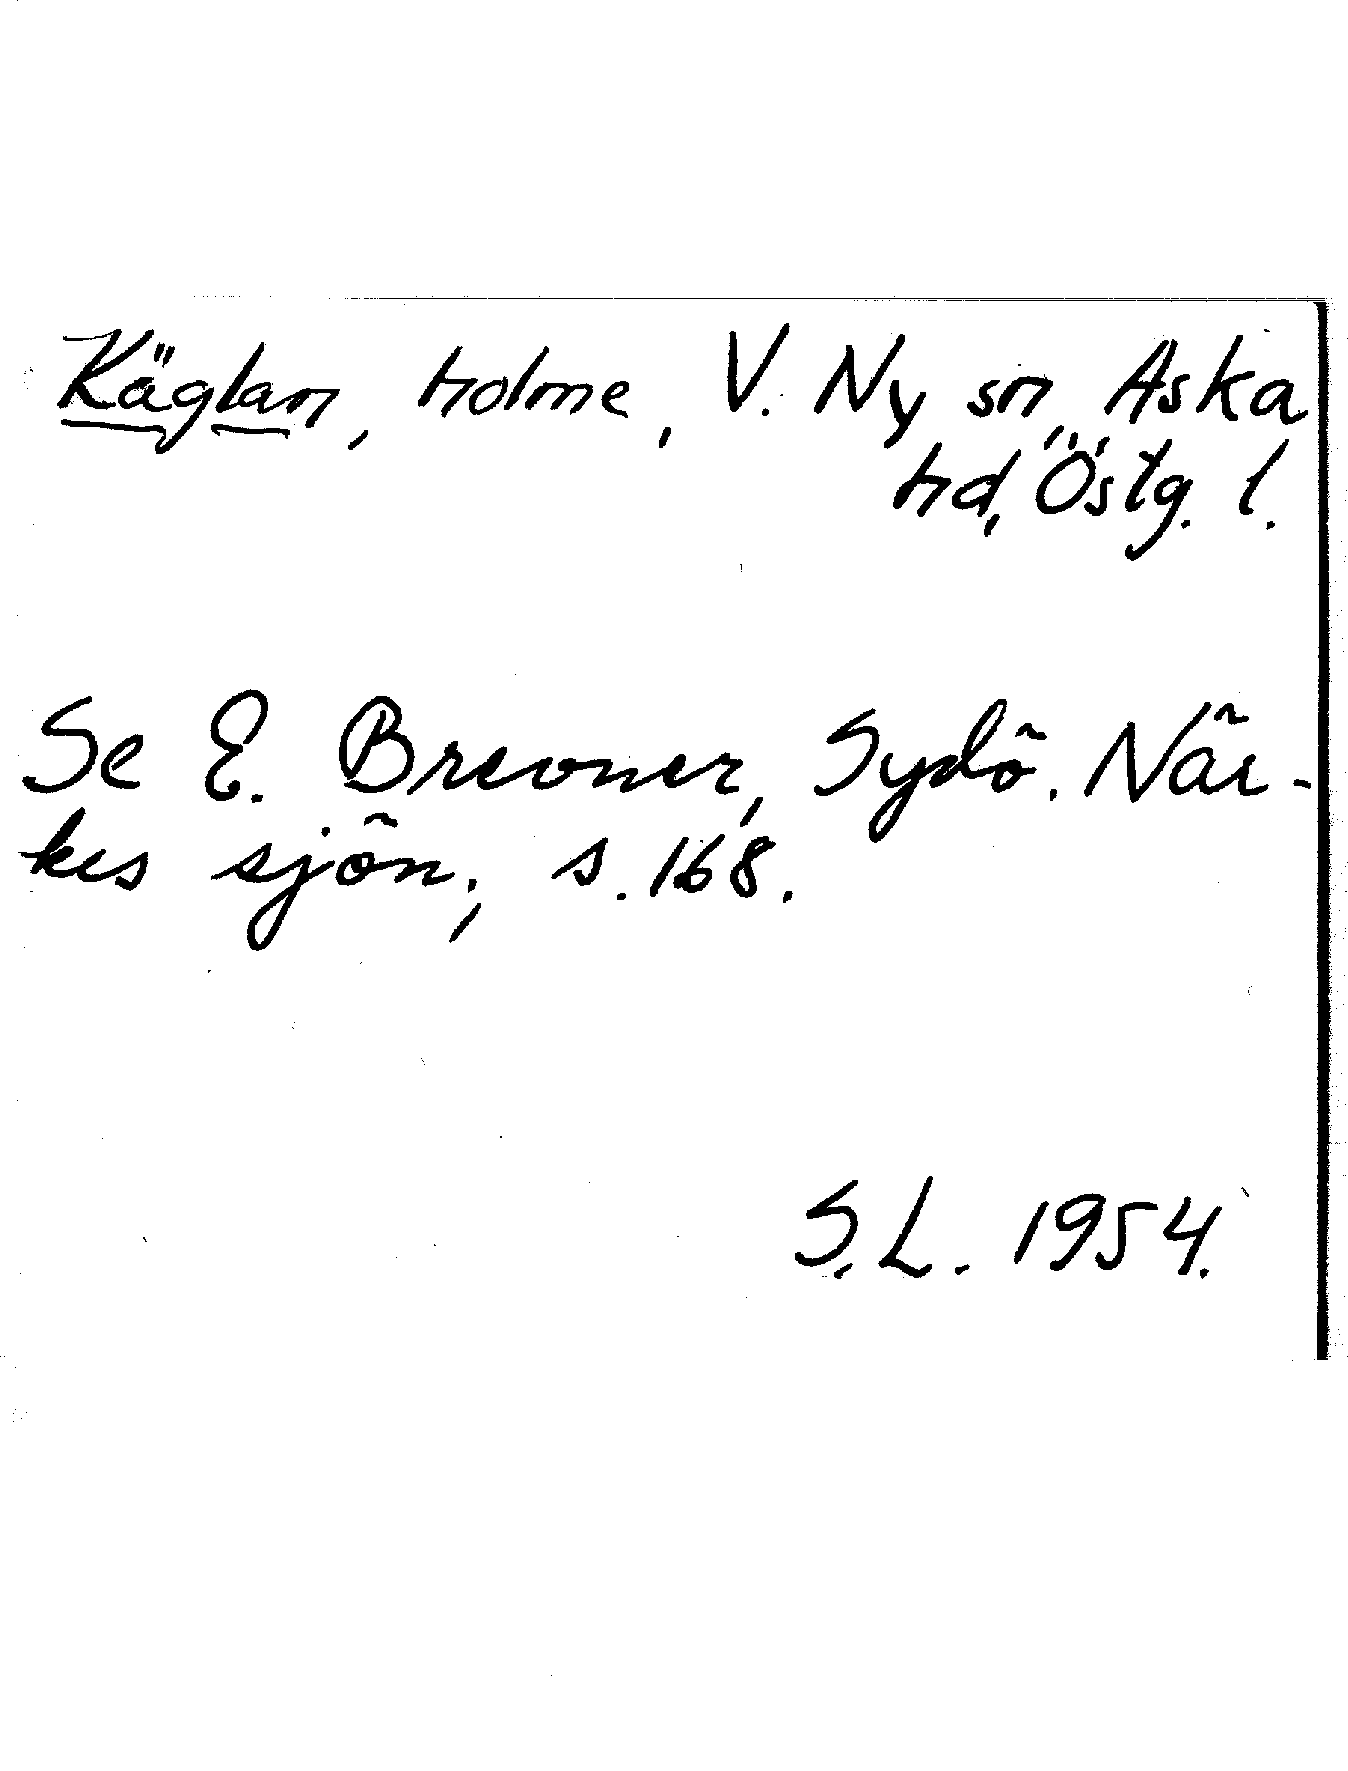 Käglan, holme, V. Ny sn, Aska
hd, Östg. l.
Se E. Brevner, Sydö. När-
kes sjön., s. 168.
S. L. 1954.